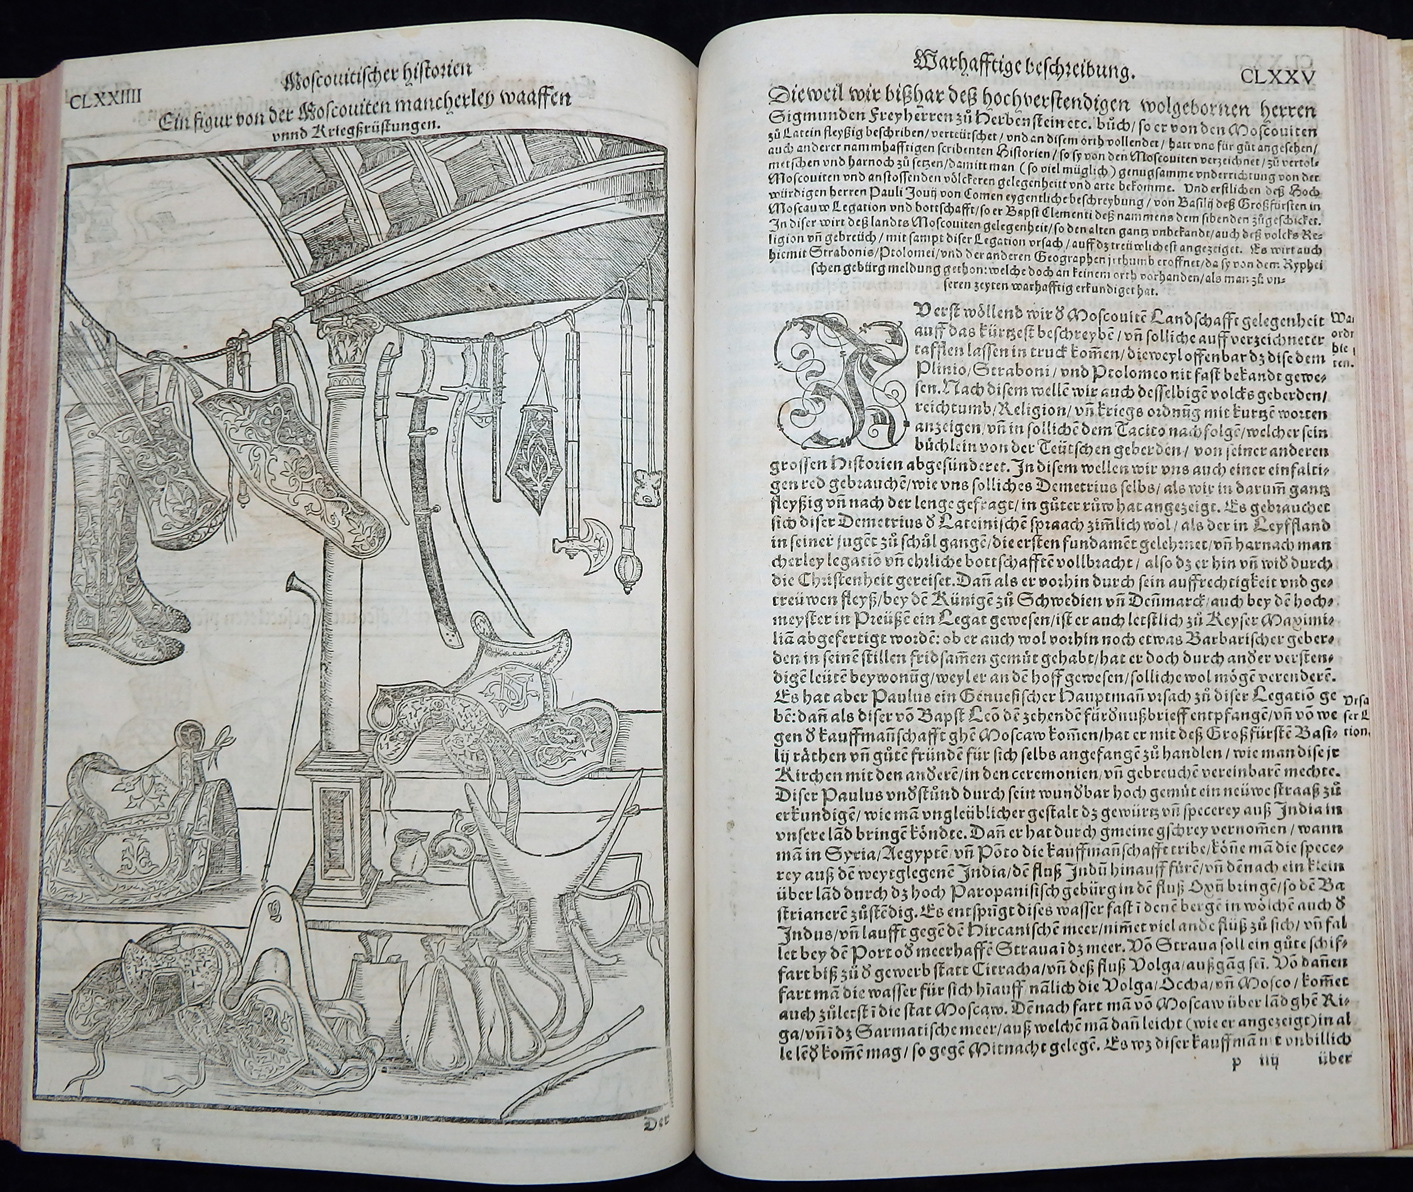 CLXXIIII
Moscouitischer historien
Ein figur von der Moscouiten mancherley waaffen
vnnd Kriegßrüstungen.
Der
Warhafftige beschreibung.
CLXXV
Die weil wir bißhar deß hochverstendigen wolgebornen herren
Sigmunden Freyherren zů Herbenstein etc. bůch/ so er von den Moscouiten
zů Latein fleyßig beschriben/ verteütschet/ vnd an disem orth vollendet/ hatt vns für gůt angesehen/
auch anderer nammhafftigen scribenten Historien/ so sy von den Moscouiten verzeichnet/ zů vertol-
metschen vnd harnoch zů setzen/ damitt man (so viel müglich) genugsamme vnderrichtung von der
Moscouiten vnd anstossenden völckeren gelegenheit vnd arte bekomme. Vnd erstlichen deß Hoch
würdigen herren Pauli Jouij von Comen eygentliche beschreybung/ von Basilij deß Großfürsten in
Moscauw Legation vnd bottschafft/ so er Bapst Clementi deß nammens dem sibenden zůgeschicket.
In diser wirt deß landts Moscouiten gelegenheit/ so den alten gantz vnbekandt/ auch deß volcks Re-
ligion vñ gebreüch/ mit sampt diser Legation vrsach/ auff dz treüwlichest angezeiget. Es wirt auch
hiemit Strabonis/ Ptolomei/ vnd der anderen Geographen jrthumb eröffnet/ da sy von dem Ryphei
schen gebürg meldung gethon: welche doch an keinem orth vorhanden/ als man zů vn-
seren zeyten warhafftig erkundiget hat.
ZVerst wöllend wir ð Moscouitẽ Landschafft gelegenheit
auff das kürtzest beschreybẽ/ vñ solliche auff verzeichneter
tafflen lassen in truck kom̃en/ die weyl offenbar dz dise dem
Plinio/ Straboni/ vnd Ptolomeo nit fast bekandt gewe-
sen. Nach disem wellẽ wir auch desselbigẽ volcks geberden/
reichtumb/ Religion/ vñ kriegs ordnũg mit kurtzẽ worten
anzeigen/ vñ in sollichẽ dem Tacito nachfolgẽ/ welcher sein
bůchlein von der Teütschen geberden/ von seiner anderen
grossen Historien abgesünderet. In disem wellen wir vns auch einer einfalti-
gen red gebrauchẽ/ wie vns solliches Demetrius selbs/ als wir in darum̃ gantz
fleyßig vñ nach der lenge gefragt/ in gůter růw hat angezeigt. Es gebrauchet
sich diser Demetrius ð Lateinischẽ spraach zim̃lich wol/ als der in Leyffland
in seiner jugẽt zů schůl gangẽ/ die ersten fundamẽt gelehrnet/ vñ harnach man
cherley legatiõ vñ ehrliche bottschafftẽ vollbracht/ also dz er hin vñ wid durch
die Christenheit gereiset. Dañ als er vorhin durch sein auffrechtigkeit vnd ge-
treüwen fleyß/ bey dẽ Künigẽ zů Schwedien vñ Deñmarck/ auch bey dẽ hoch-
meyster in Preüßẽ ein Legat gewesen/ ist er auch letstlich zů Keyser Maximi-
liã abgefertigt wordẽ: ob er auch wol vorhin noch etwas Barbarischer geber-
den in seinẽ stillen fridsam̃en gemüt gehabt/ hat er doch durch anðer versten-
digẽ leütẽ beywonũg/ weyl er an dẽ hoff gewesen/ solliche wol mögẽ verenderẽ.
Es hat aber Paulus ein Genuesischer Hauptmañ vrsach zů diser Legatiõ ge
bẽ: dañ als diser võ Bapst Leõ dẽ zehendẽ fürdnußbrieff entpfangẽ/ vñ võ we
gen ð kauffmañschafft ghẽ Moscaw kom̃en/ hat er mit deß Großfürstẽ Basi-
lij räthen vñ gůtẽ fründẽ für sich selbs angefangẽ zů handlen/ wie man dise jr
Kirchen mit den anderẽ/ in den ceremonien/ vñ gebreuchẽ vereinbarẽ mechte.
Diser Paulus vnðstůnd durch sein wunðbar hoch gemüt ein neüwe straaß zů
erkundigẽ/ wie mã vngleüblicher gestalt dz gewürtz vñ specerey auß India in
vnsere lãd bringẽ köndte. Dañ er hat durch gmeine gschrey vernom̃en/ wann
mã in Syria/ Aegyptẽ vñ Põto die kauffmañschafft tribe/ köñe mã die spece-
rey auß dẽ weyt glegenẽ India/ dẽ fluß Indũ hinauff fürẽ/ vñ dẽnach ein klein
über lãd durch dz hoch Paropanisisch gebürg in dẽ fluß Oxũ bringẽ/ so dẽ Ba
strianerẽ zůstẽdig. Es entsprigt dises wasser fast ĩ denẽ bergẽ in wölchẽ auch ð
Indus/ vñ laufft gegẽ dẽ Hircanischẽ meer/ nim̃et viel andẽ flüß zů sich/ vñ fal
let bey dẽ Port oð meerhaffẽ Straua ĩ dz meer. Võ Straua soll ein gůte schif-
fart biß zů ð gewerb statt Citracha/ vñ deß fluß Volga/ außgãg seĩ. Võ dañen
fart mã die wasser für sich hĩauff nãlich die Volga/ Occha/ vñ Mosco/ kom̃et
auch zů letst ĩ die stat Moscaw. Dẽnach fart mã võ Moscaw über lãd ghẽ Ri-
ga/ vñ ĩ dz Sarmatische meer/ auß welchẽ mã dañ leicht (wie er angezeigt) in al
le lẽð kom̃en mag/ so gegẽ Mitnacht gelegẽ. Es wz diser kauffmañ nit vnbillich
p iiij über